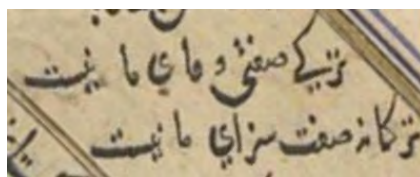 ترکی صفتی وفای ما نیست
ترکانه صفت سزای ما نیست